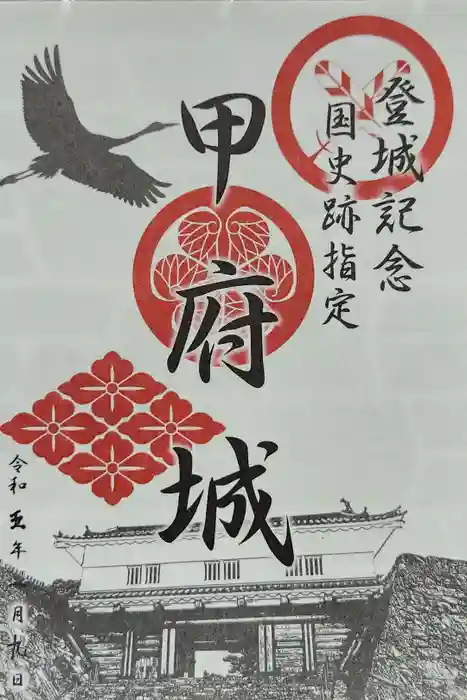 登城記念
国史跡指定
甲府城
令和五年一月九日